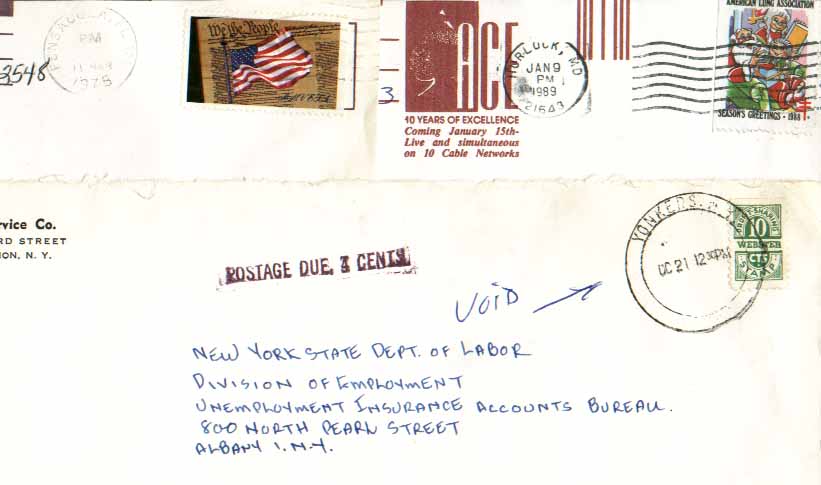 PM
1976
3548
We the People
3
ACE
10 YEARS OF EXCELLENCE
Coming January 15th-
Live and simultaneous
on 10 Cable Networks
HURLOCK, MD
JAN 9
PM
1989
21643
AMERICAN LUNG ASSOCIATION
SEASON'S GREETINGS • 1988
rvice Co.
RD STREET
ION, N. Y.
POSTAGE DUE, CENTS
VOID
YONKERS, N.Y.
DC 21 12 30PM
10
WEBSTER
CTS
STAMP
NEW YORK STATE DEPT. OF LABOR
DIVISION OF EMPLOYMENT
UNEMPLOYMENT INSURANCE ACCOUNTS BUREAU.
800 NORTH PEARL STREET
ALBANY 1. N.Y.